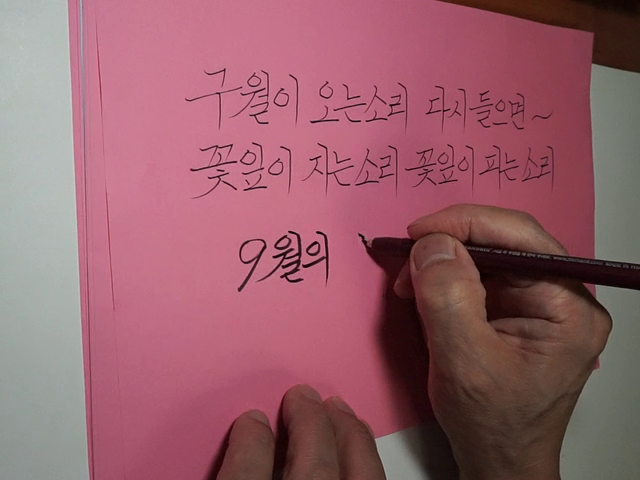 구월이 오는소리 다시들으면~
꽃잎이 지는소리 꽃잎이 피는소리
9월의